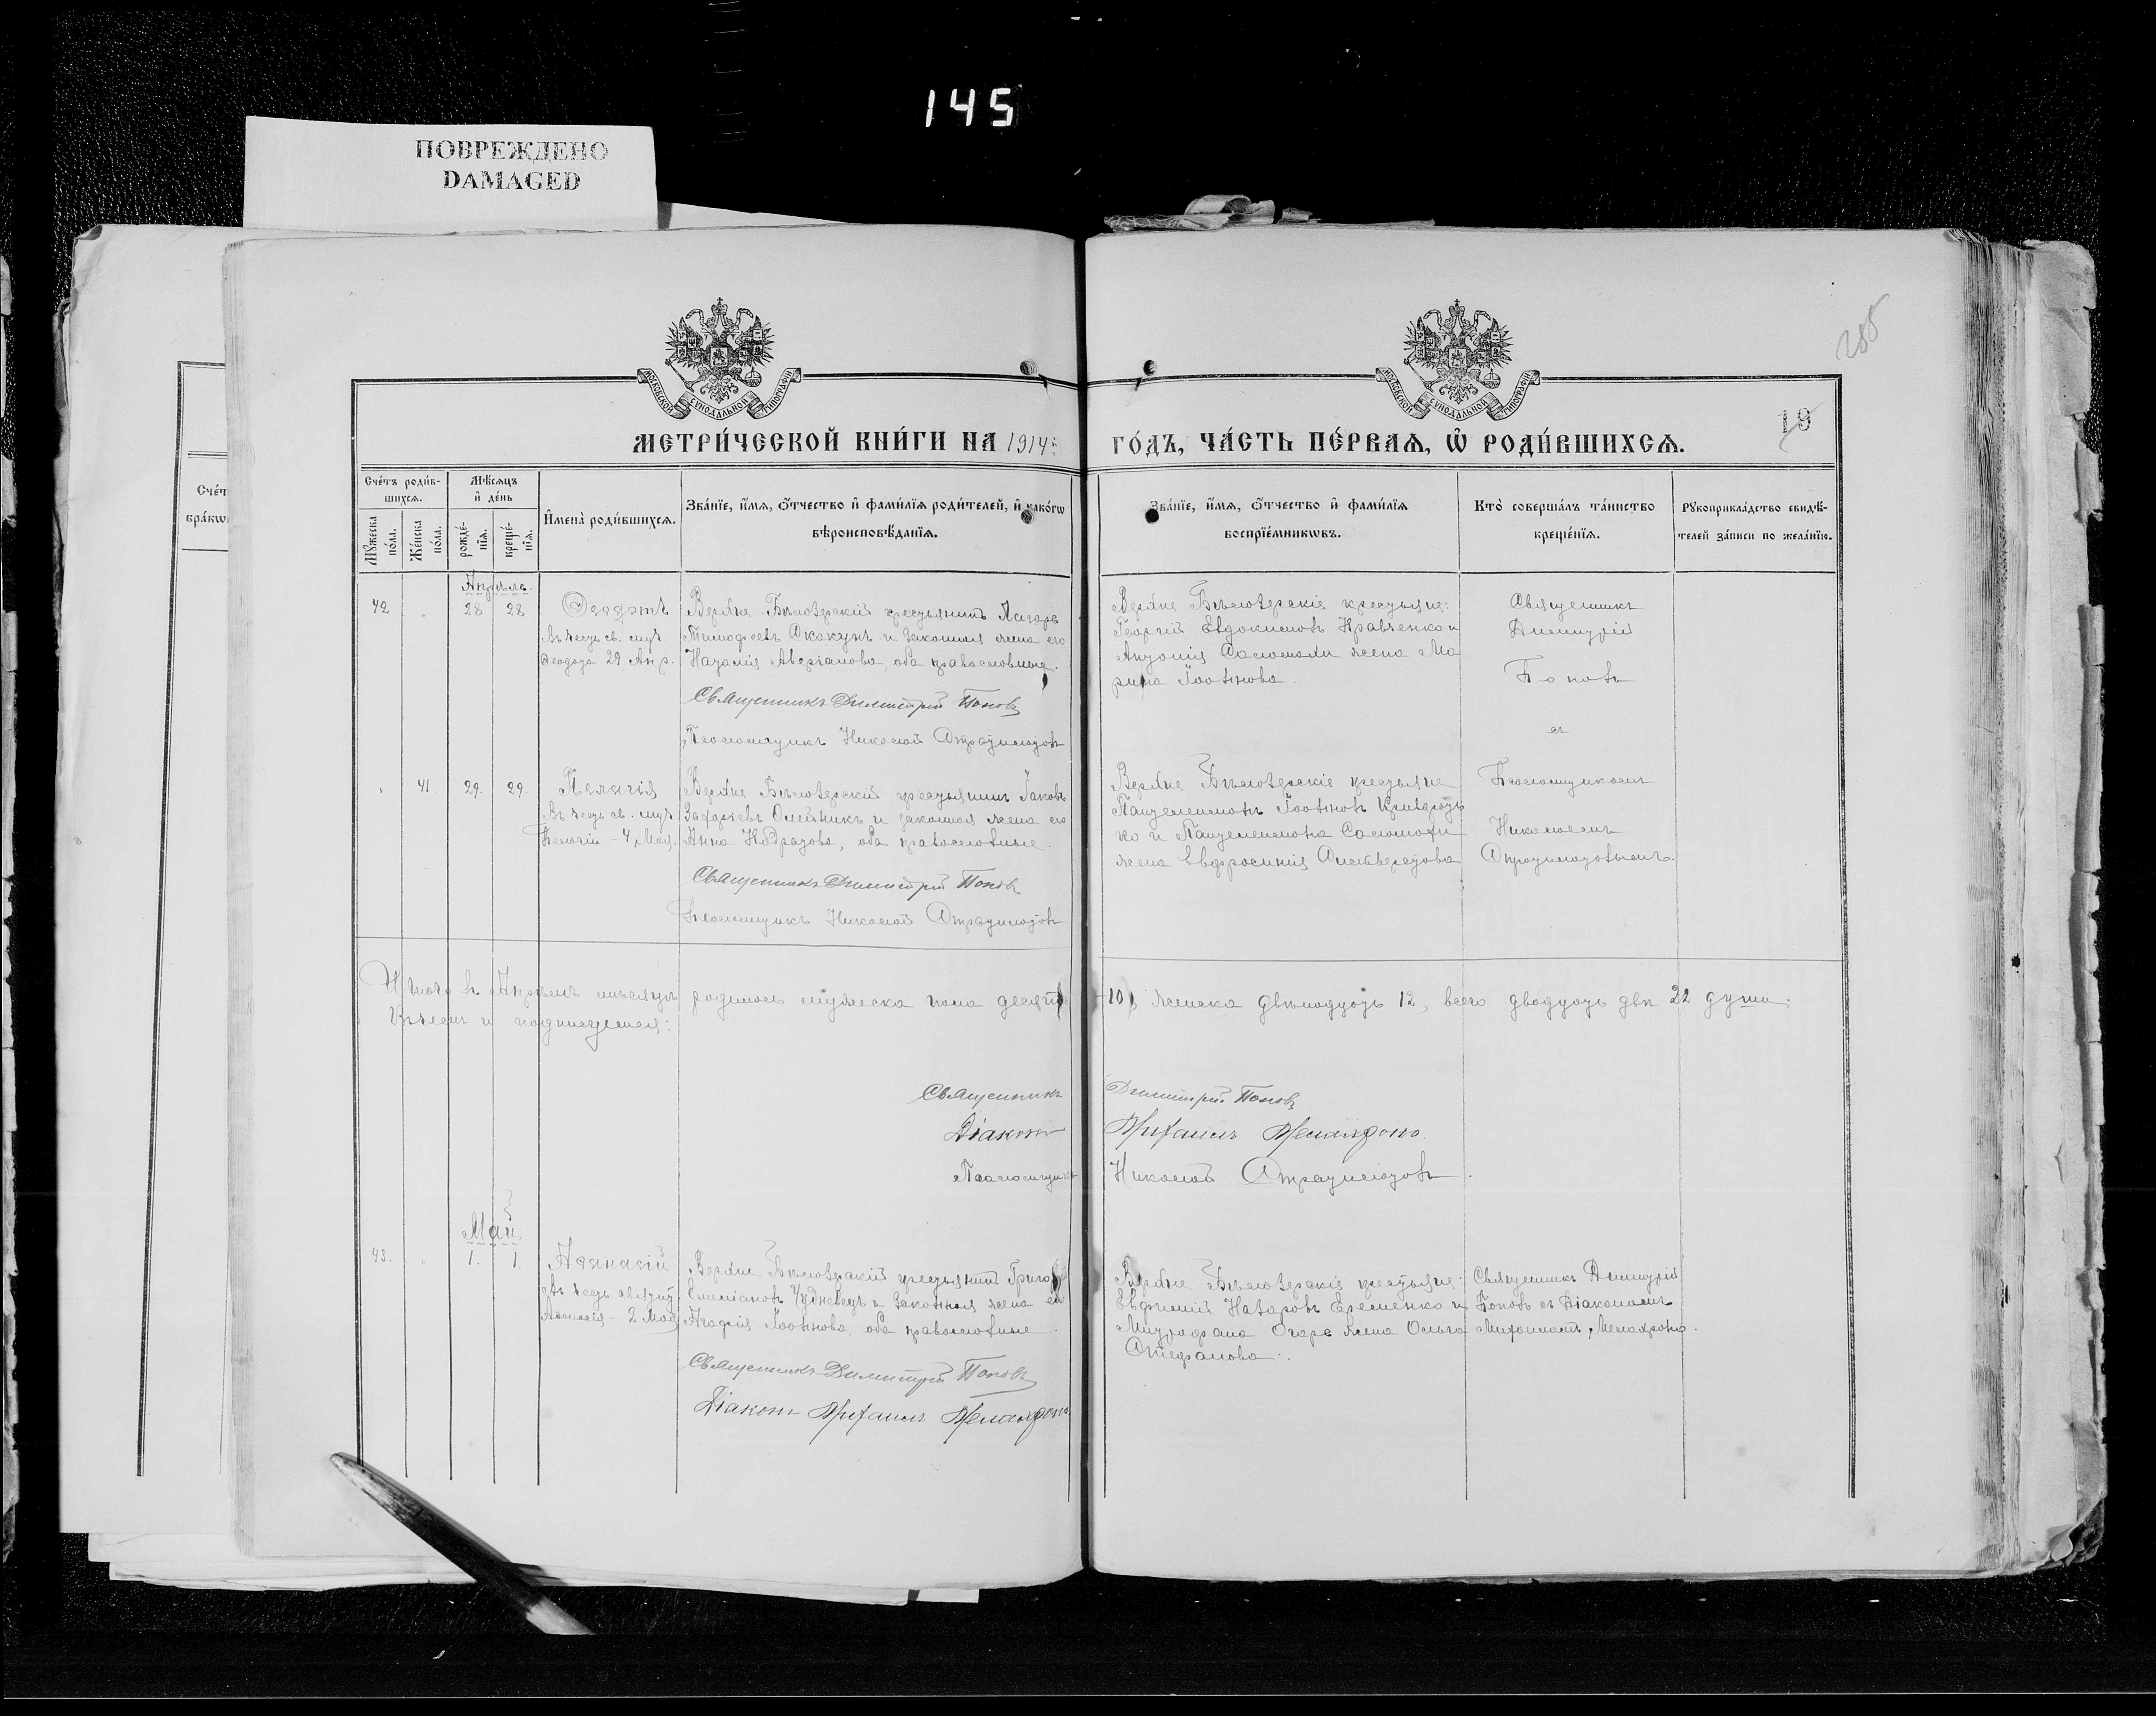 145
ПОВРЕЖДЕНО
DAMAGED
285
19
МОСКОВСКОЙ СѴНОДАЛЬНОЙ ТИПОГРАФІИ
МОСКОВСКОЙ СѴНОДАЛЬНОЙ ТИПОГРАФІИ
МЕТРИ́ЧЕСКОЙ КНИ́ГИ НА 1914 ГО́ДЪ, ЧА́СТЬ ПЕ́РВАѦ, Ѡ҆ РОДИ́ВШИХСѦ.
Сче́тъ
бра́кѡ
Сче́тъ роди́в-
шихсѧ.
Мꙋ́жеска по́ла.
Же́нска по́ла.
Мѣ́сѧцъ
и҆ де́нь
рожде́-
нїѧ.
креще́-
нїѧ.
И҆мена̀ роди́вшихсѧ.
Зва́нїе, и҆́мѧ, ѻ҆́тчество и҆ фами́лїѧ роди́телей, и҆ како́гѡ
вѣроисповѣ́данїѧ.
Зва́нїе, и҆́мѧ, ѻ҆́тчество и҆ фами́лїѧ
воспрїе́мникѡвъ.
Кто̀ соверша́лъ та́инство
креще́нїѧ.
Рꙋкоприкла́дство свидѣ́-
телей за́писи по жела́нїю.
Апрѣль
42 28 28
Ѳеодотъ
Въ честь св. муч.
Ѳеодота 29 Апр.
Верхне Бѣлозерскій крестьянинъ Назаръ
Тимофеевъ и законная жена его
Наталія Аверіанова, оба православные.
Священникъ Димитрій Поповъ
Псаломщикъ Николай
Верхне Бѣлозерскіе крестьяне:
Георгій Евдокимовъ Кравченко и
Антонія жена Ма
рина Іоаннова
Священникъ
Димитрій
Поповъ
съ
41. 29. 29.
Пелагія
Въ честь св. муч.
Пелагіи - 4 Мая.
Верхне Бѣлозерскій крестьянинъ Іаковъ
Захаріевъ Олейникъ и законная жена его
Анна Кодратова, оба православные.
Священникъ Димитрій Поповъ
Псаломщикъ Николай
Верхне Бѣлозерскіе крестьяне
Пантелеимонъ Іоанновъ
ко и Пантелеимона
жена Евфросинія Силвестрова
Псаломщикомъ
Николаемъ
Итого въ Апрѣлѣ мѣсяцѣ родилось мужеска пола десять 10, женска двѣнадцать 12, всего двадцать двѣ 22 души.
въ чемъ и подписуемся:
Священникъ Димитрій Поповъ
Діаконъ Михаилъ
Псаломщикъ Николай
Май
43. 1. 1
Аѳанасій
въ честь святит.
Аѳанасія - 2 Мая
Верхне Бѣлозерскій крестьянинъ Григорій
Емеліановъ Чудновецъ и законная жена его
Агафія Іоаннова, оба православные.
Священникъ Димитрій Поповъ
Діаконъ Михаилъ
Верхне Бѣлозерскіе крестьяне:
Евфимій Назаровъ Еременко и
Митрофана жена Ольга
Стефанова.
Священникъ Димитрій
Поповъ съ Діакономъ
Михаиломъ